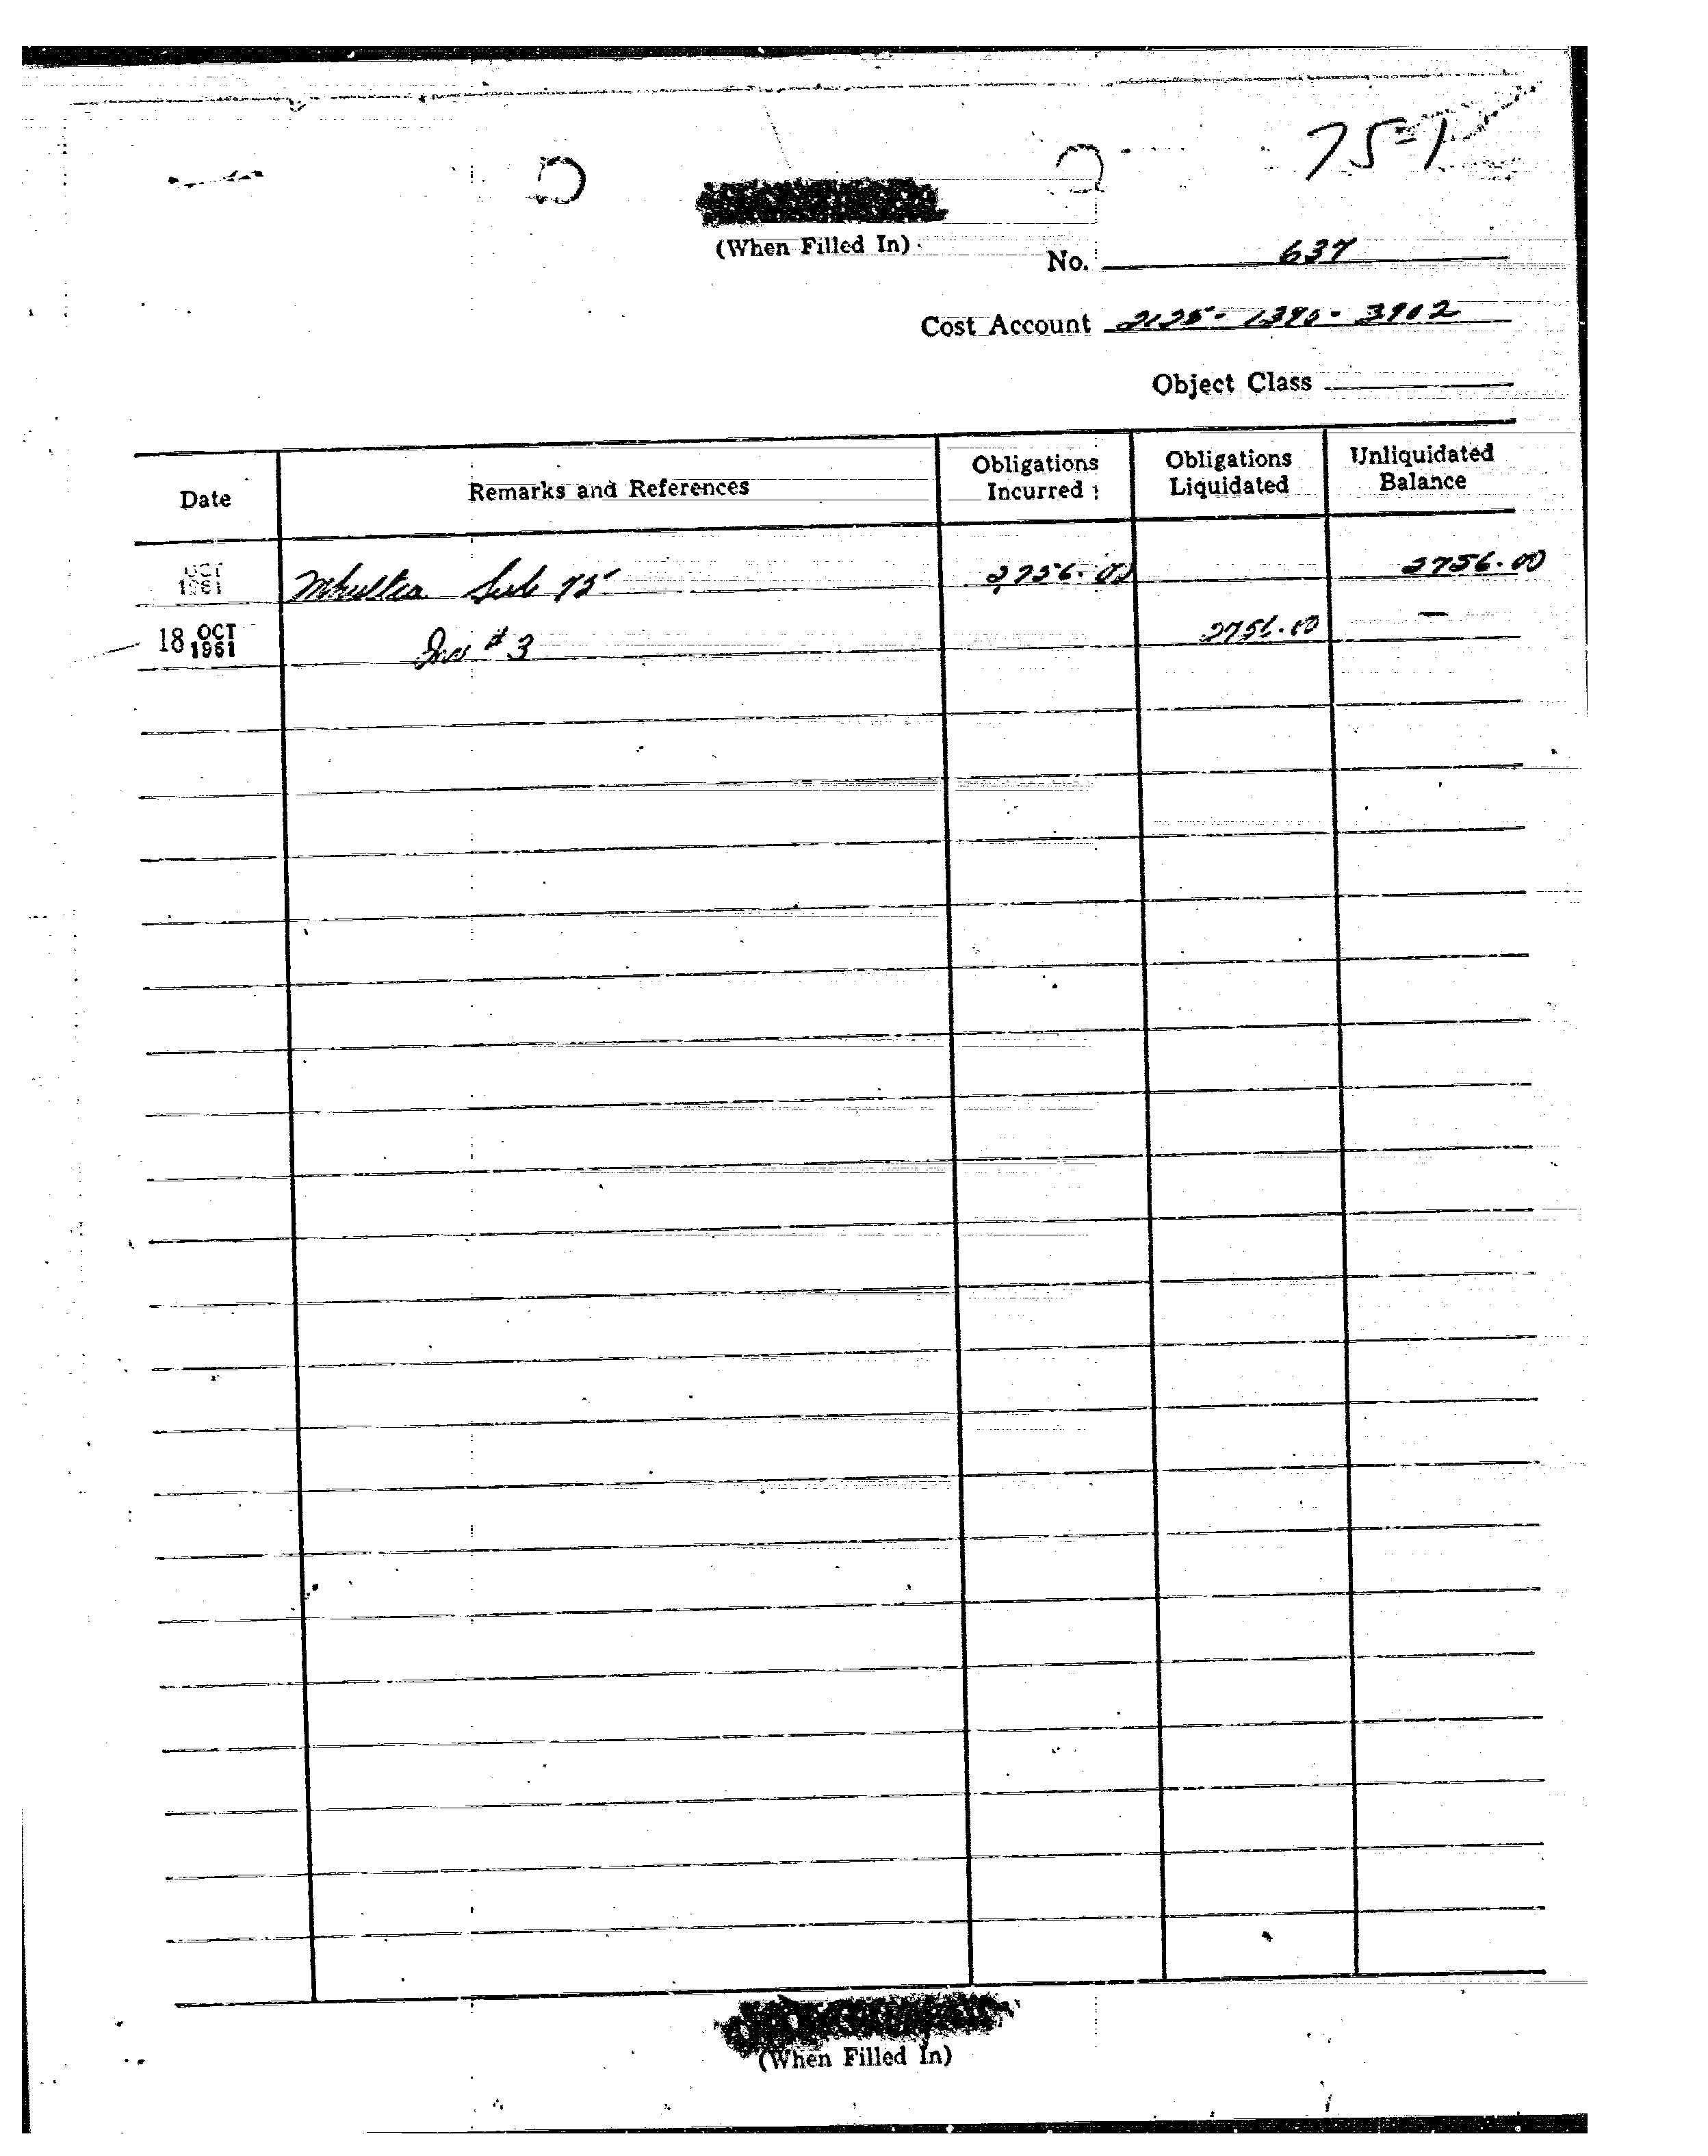 75-1
(When Filled In)
No. 637
Cost Account 2125-1390-3902
Object Class
Date Remarks and References Obligations Incurred Obligations Liquidated Unliquidated Balance
OCT 1961 Mkultra Sub 75 2756.00 2756.00
18 OCT 1961 Inv #3 2756.00 —
(When Filled In)